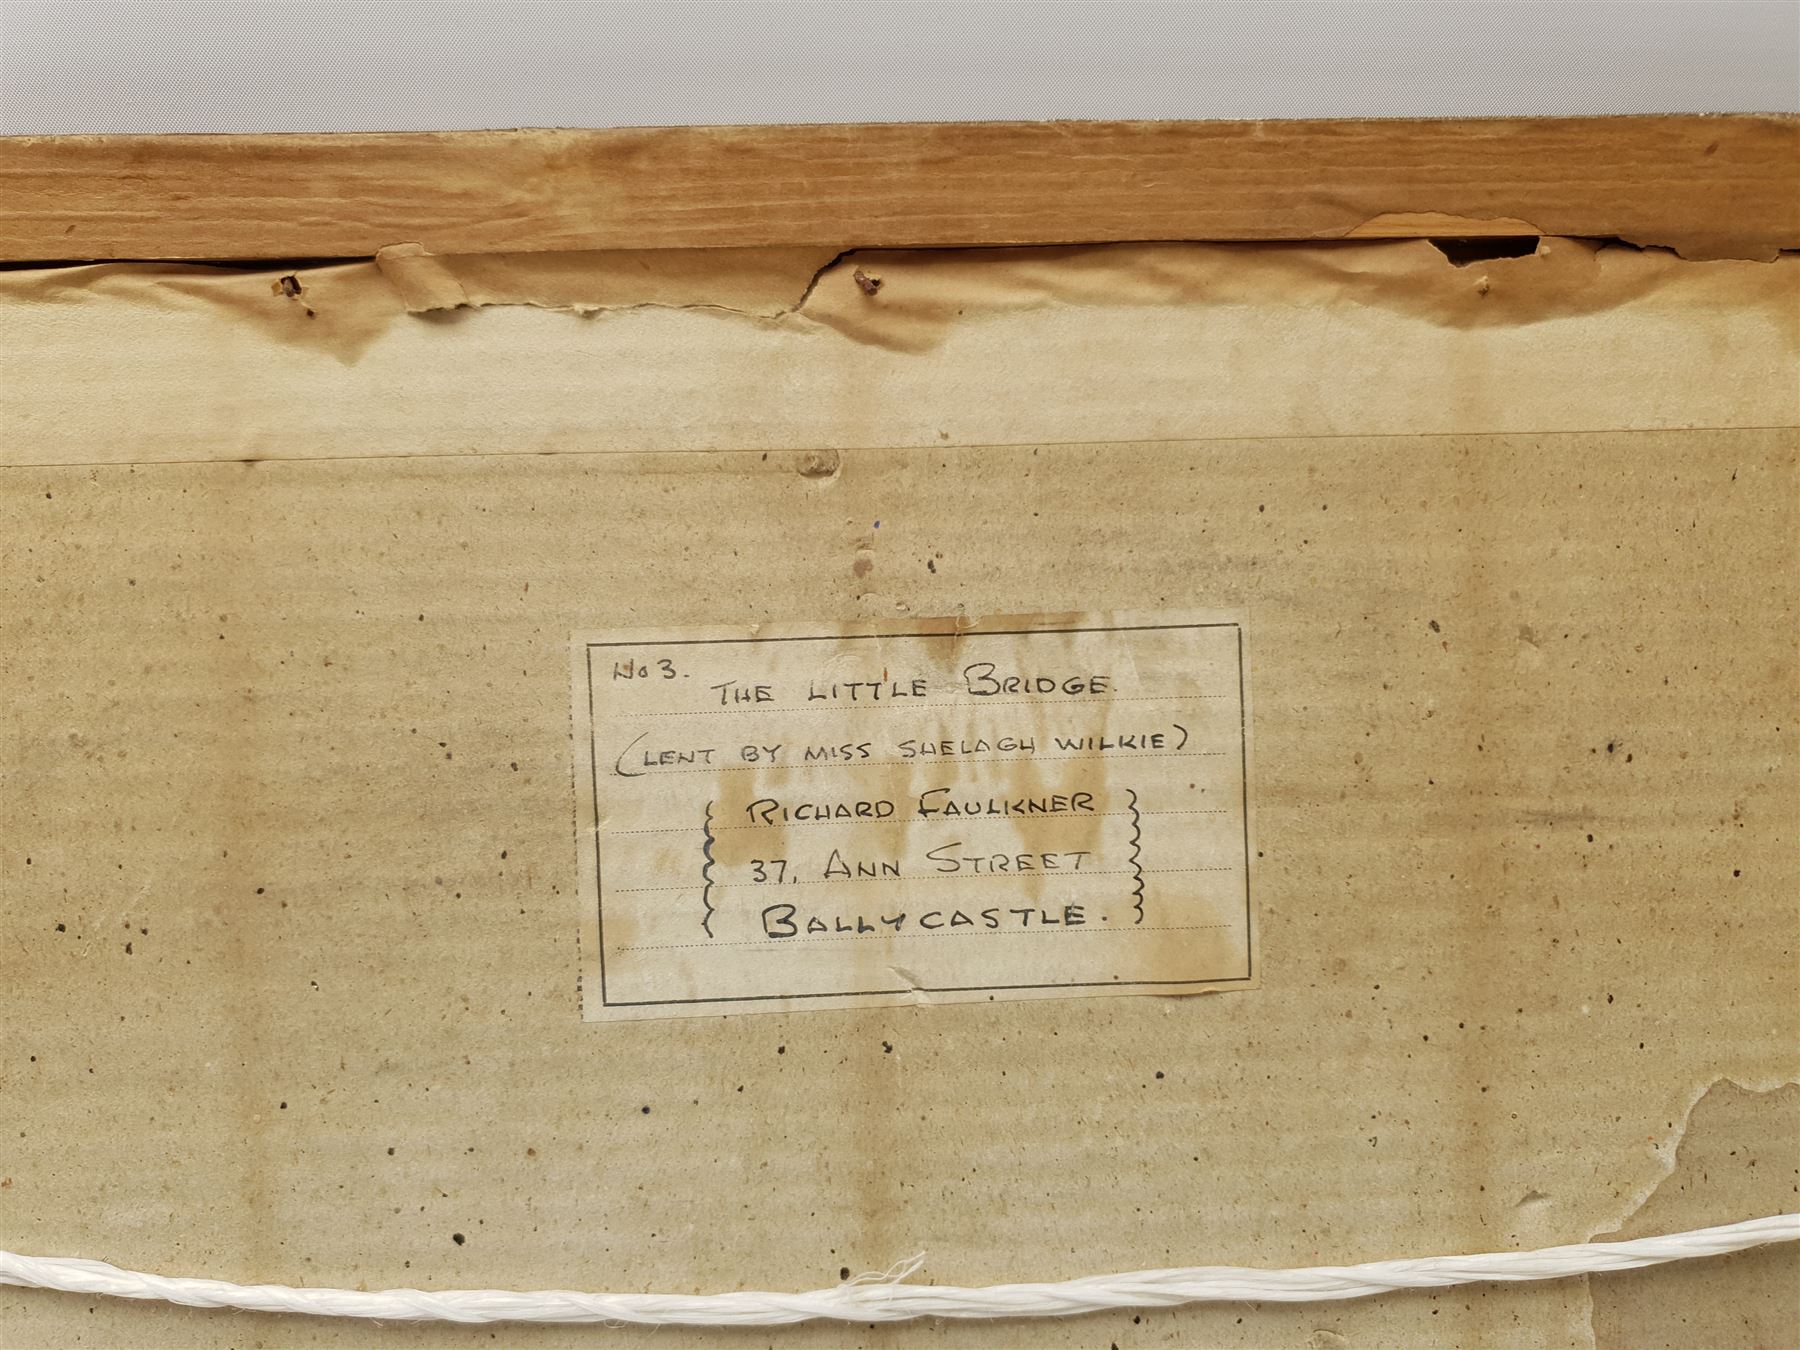 No 3.
THE LITTLE BRIDGE.
(LENT BY MISS SHELAGH WILKIE)
RICHARD FAULKNER
37, ANN STREET
BALLYCASTLE.